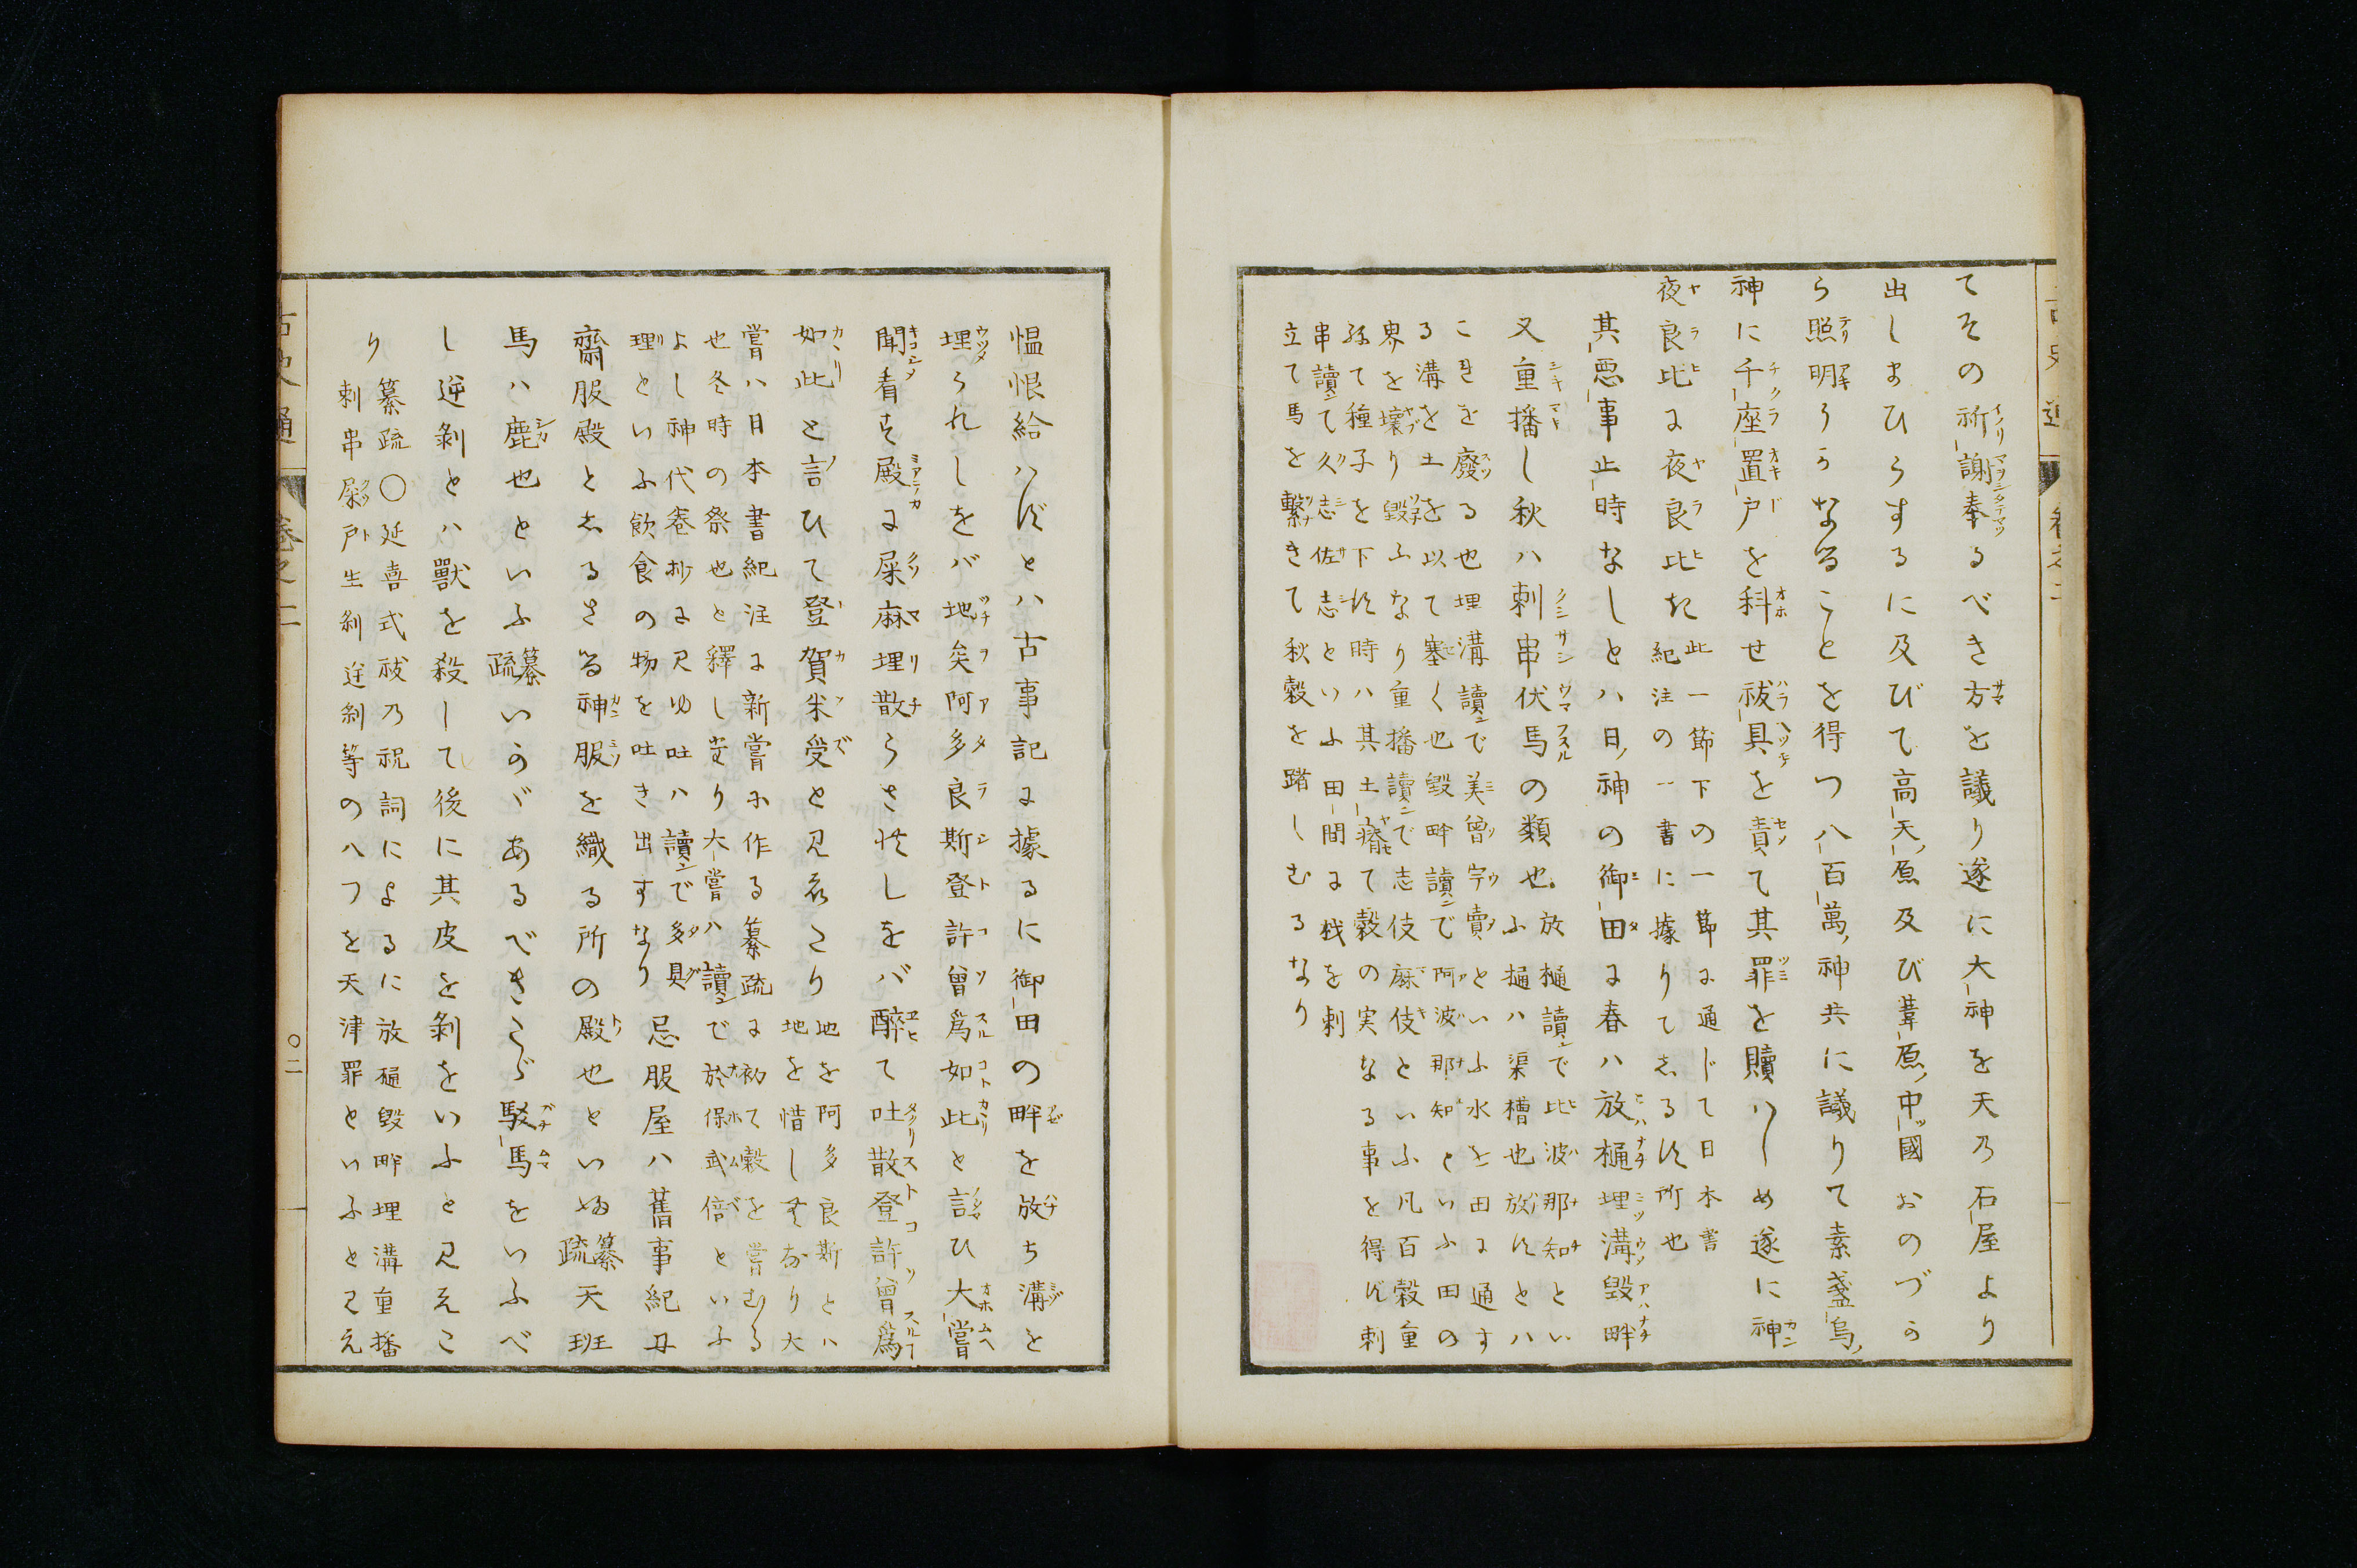 てその祈謝奉るべき方を議り遂に大神を天乃石屋より
出しまひらするに及びて高天原及び葦原中國おのづか
ら照明らかなることを得つ八百萬神共に議りて素盞烏
神に千座置戸を科せ祓具を責て其罪を贖はしめ遂に神
夜良比に夜良比き
此一節下の一節に通じて日本書
紀注の一書に據りてしるす所也
其惡事止時なしとハ日神の御田に春ハ放樋埋溝毀畔
又重播し秋ハ刺串伏馬の類也
放樋讀で比波那知とい
ふ樋ハ渠槽也放すとハ
こきを廢る也埋溝讀で美曽宇賣といふ水を田に通す
る溝を土を以て塞く也毀畔讀で阿波那知といふ田の
界を壞り毀ふなり重播讀で志伎麻伎といふ凡百穀重
祢て種子を下す時ハ其土瘠て穀の実なる事を得ず刺
串讀て久志佐志といふ田間に杙を刺
立て馬を繋きて秋穀を踏しむるなり
慍恨給ハずとハ古事記に據るに御田の畔を放ち溝を
埋うれしをバ地矣阿多良斯登許曾爲如此と詔ひ大嘗
聞看す殿に屎麻理散らさせしをバ醉て吐散登許曾爲
如此と言ひて登賀米受と見えたり
地を阿多良斯とハ
地を惜し無なり大
嘗ハ日本書紀注に新嘗に作る纂疏に初て穀を嘗むる
也冬時の祭也と釋し定り大嘗ハ讀で於保武倍といふ
よし神代巻抄に見ゆ吐ハ讀で多具
理といふ飲食の物を吐き出すなり
忌服屋ハ舊事紀に
齋服殿としるさる神服を織る所の殿也といぬ
纂
疏
天班
馬ハ鹿也といふ
纂
疏
いうがあるべきこゞ駁馬をいふべ
し逆剝とハ獸を殺して後に其皮を剝をいふと見えこ
り
纂疏〇延喜式祓乃祝詞によるに放樋毀畔埋溝重播
刺串屎戸生剝逆剝等の八つを天津罪といふと見え
古史通
巻之二
〇二